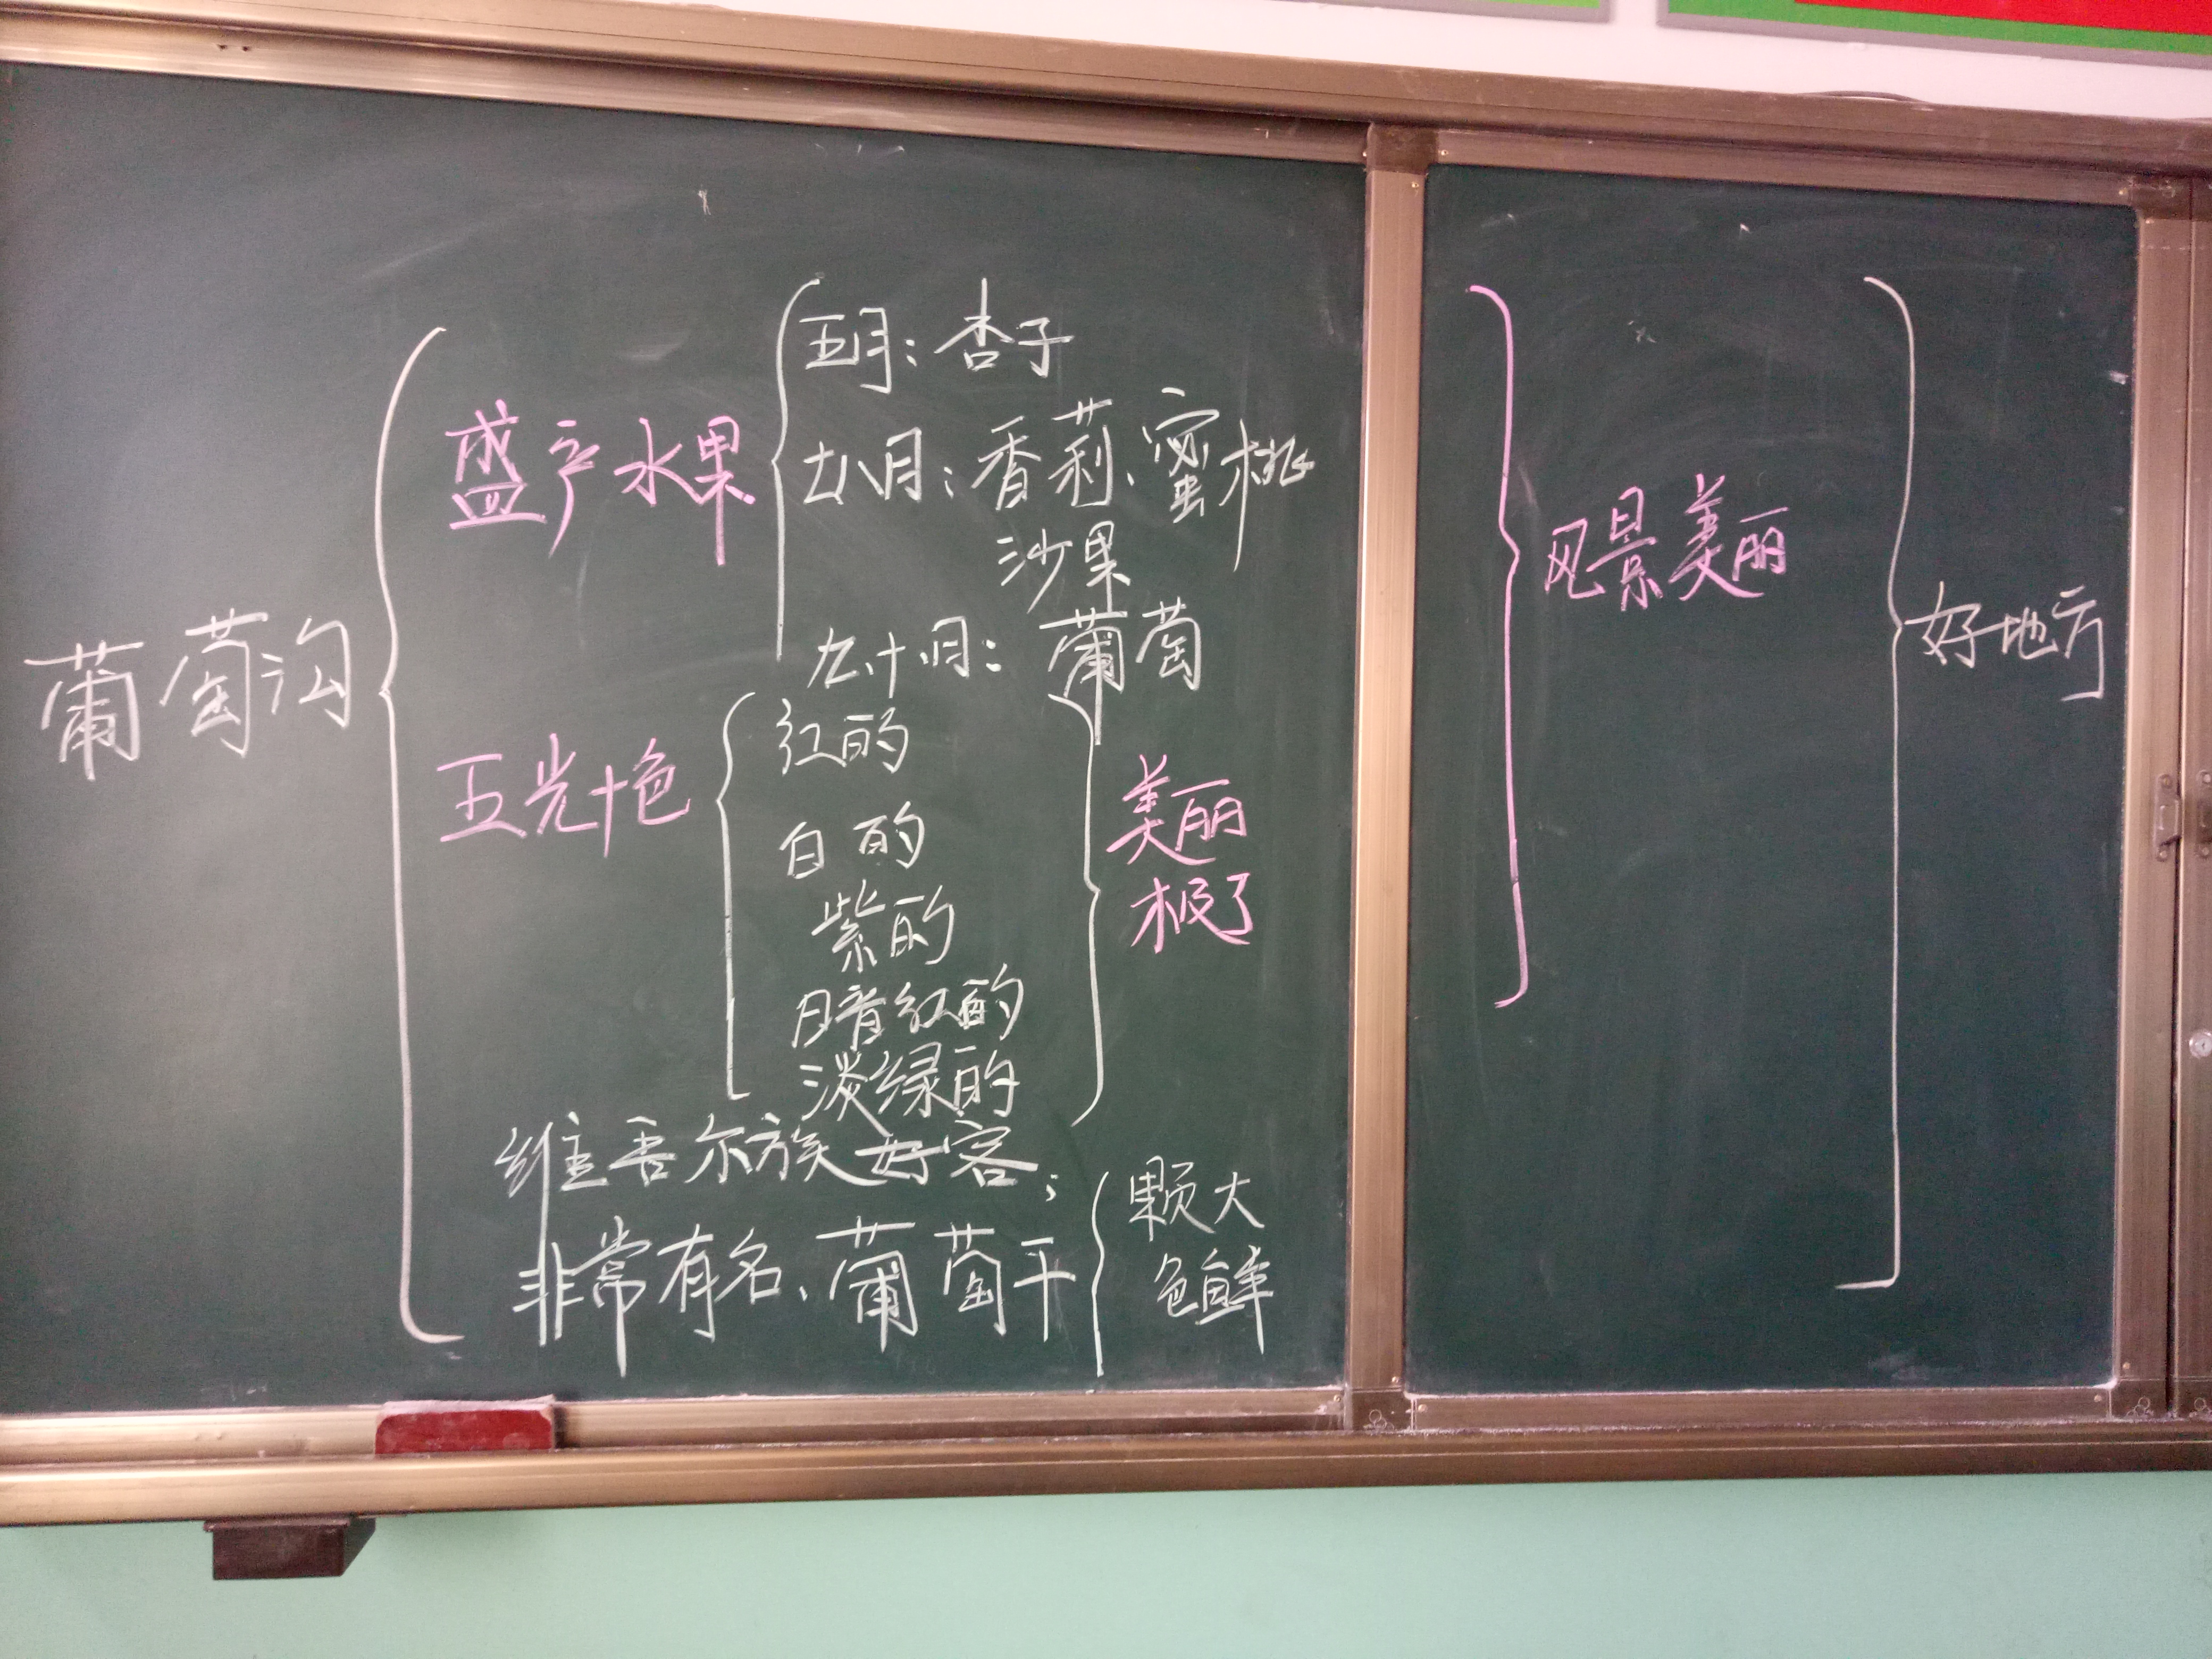 葡萄沟
盛产水果
五月：杏子
七八月：香莉、蜜桃
沙果
九、十月：葡萄
五光十色
红的
白的
紫的
暗红的
淡绿的
美丽
极了
维吾尔族好客；
非常有名、葡萄干
颗大
色鲜
风景美丽
好地方